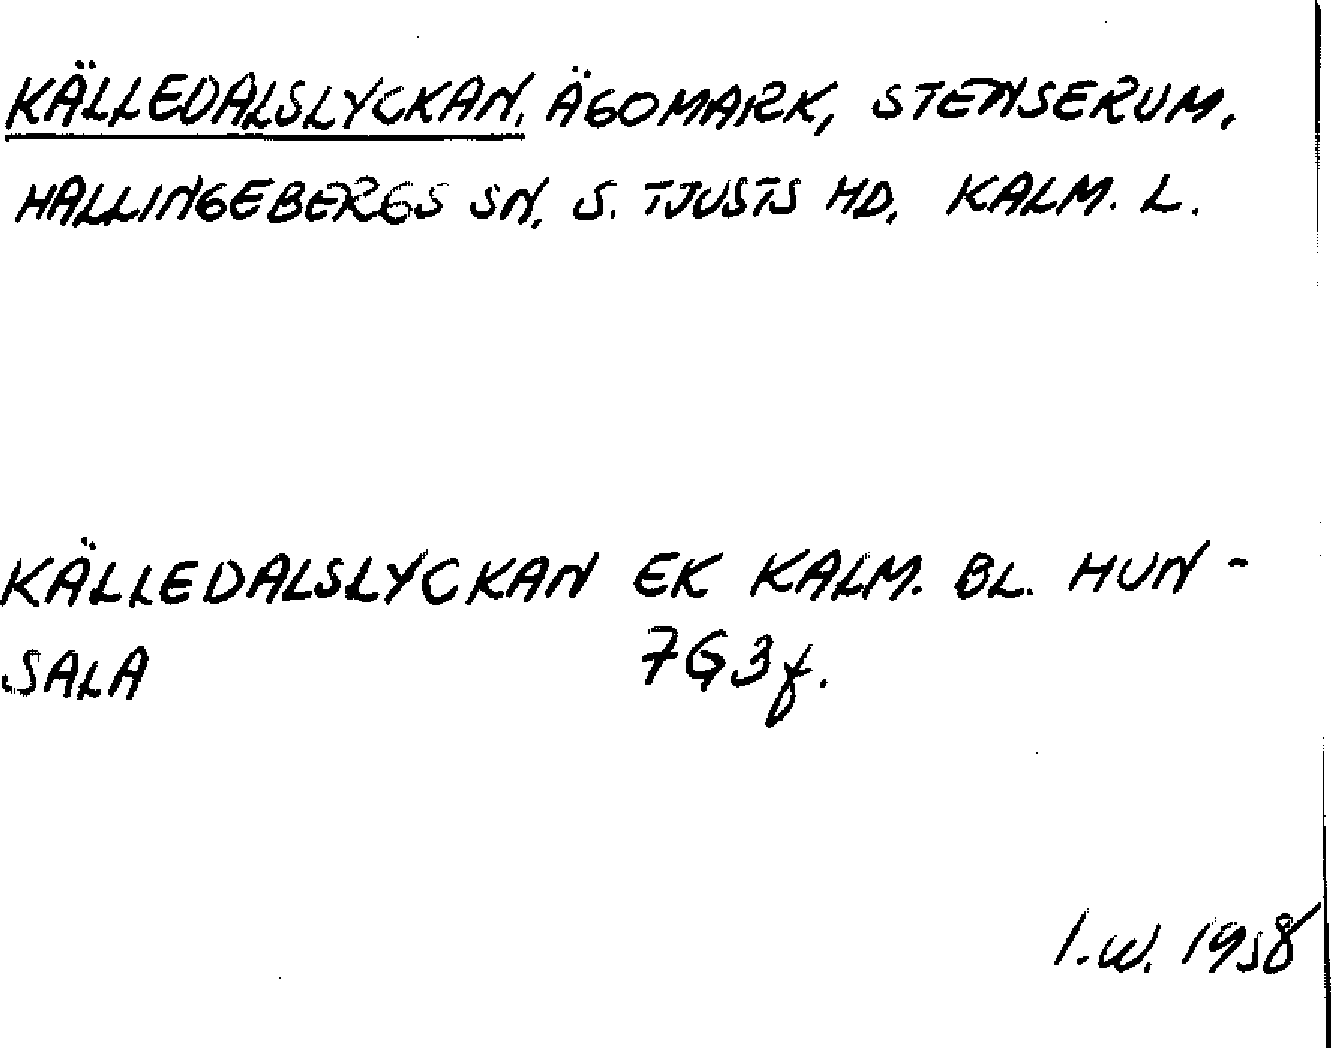 KÄLLEDALSLYCKAN, ÄGOMARK, STENSERUM,
HALLINGEBERGS SN, S. TJUSTS HD, KALM. L.
KÄLLEDALSLYCKAN EK KALM. BL. HUN-
SALA 7G3f.
I.W. 1958